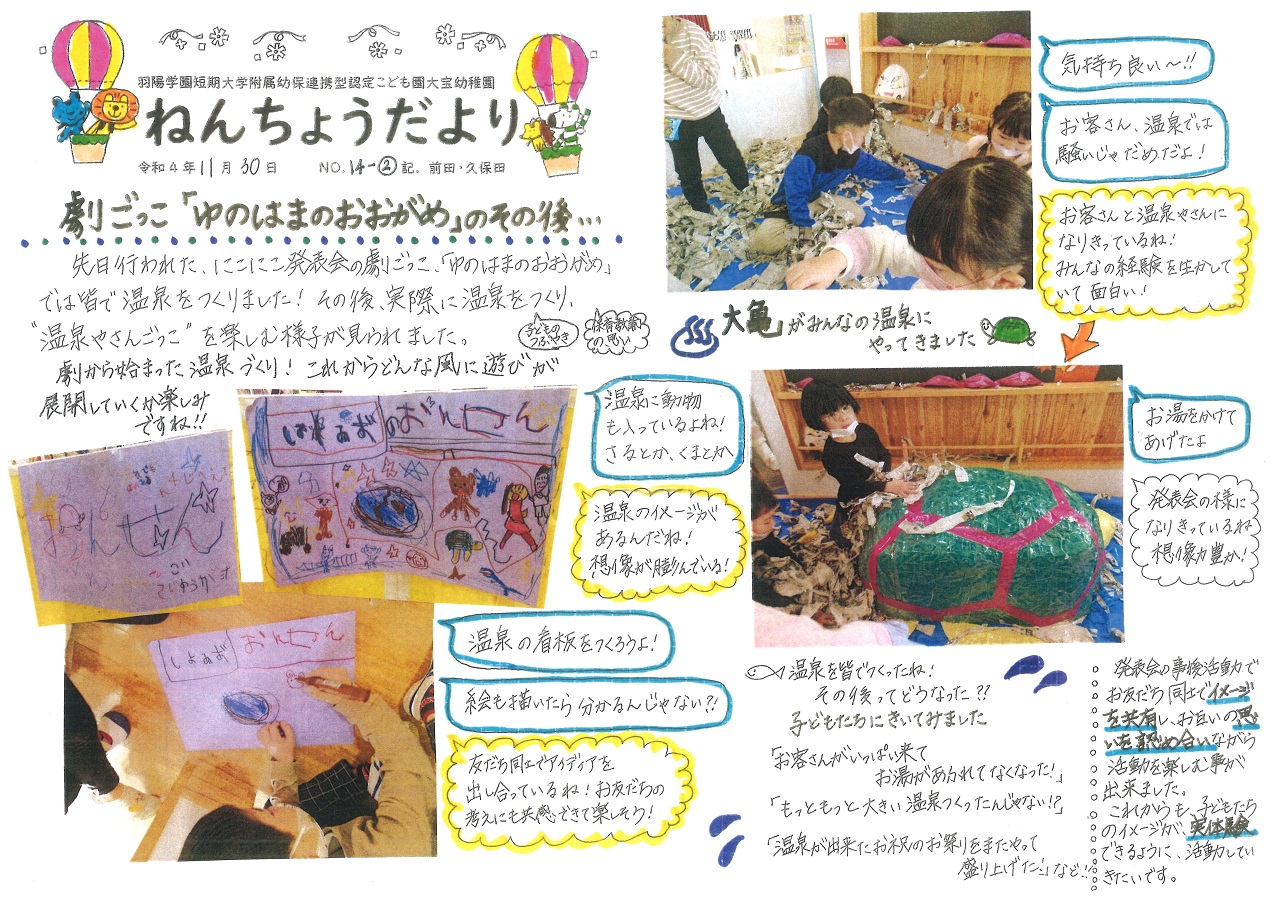 羽陽学園短期大学附属幼保連携型認定こども園大宝幼稚園
ねんちょうだより
令和4年11月30日 NO.14-② 記、前田・久保田
劇ごっこ「ゆのはまのおおがめ」のその後…
先日行われた、にこにこ発表会の劇ごっこ、「ゆのはまのおおがめ」
では皆で温泉をつくりました！その後、実際に温泉をつくり、
"温泉やさんごっこ"を楽しむ様子が見られました。
子どもの
つぶやき
保育教諭
の思い
劇から始まった温泉づくり！これからどんな風に遊びが
展開していくか楽しみ
ですね!!
おんせん
のおんせん
温泉に動物
も入っているよね！
さるとか、くまとか
温泉のイメージが
あるんだね！
想像が膨んでいる！
おんせん
温泉の看板をつくろうよ！
絵も描いたら分かるんじゃない?!
友だち同士でアイディアを
出し合っているね！お友だちの
考えにも共感できて楽しそう！
気持ち良い〜!!
お客さん、温泉では
騒いじゃだめだよ！
お客さんと温泉やさんに
なりきっているね！
みんなの経験を生かして
いて面白い！
大亀」がみんなの温泉に
やってきました
お湯をかけて
あげたよ
発表会の様に
なりきっているね
想像力豊か！
温泉を皆でつくったね！
その後ってどうなった??
子どもたちにきいてみました
「お客さんがいっぱい来て
お湯があふれてなくなった！」
「もっともっと大きい温泉つくったんじゃない!?」
「温泉が出来たお祝のお祭りをまたやって
盛り上げた！」など!!
発表会の事後活動で
お友だち同士でイメージ
を共有し、お互いの思
いを認め合いながら
活動を楽しむ事が
出来ました。
これからも、子どもたち
のイメージが、実体験
できるように、活動してい
きたいです。